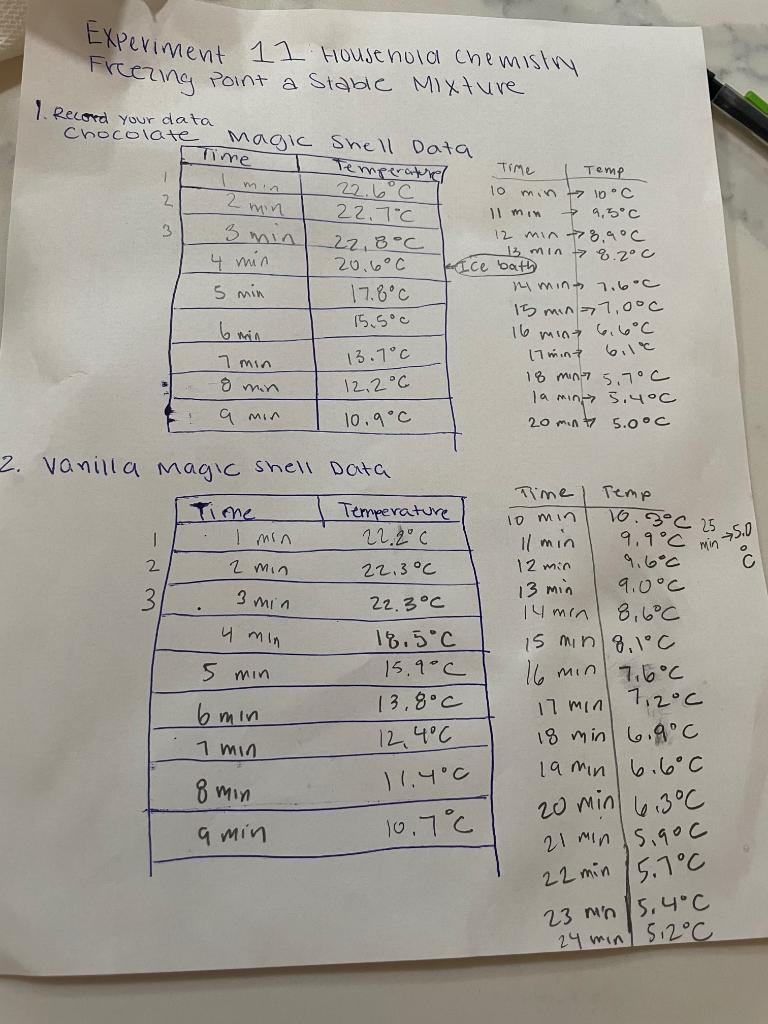 Experiment 11 Household Chemistry
Freezing Point a Stable Mixture
1. Record your data
Chocolate Magic Shell Data
Time Temperature
1 1 min 22.6°C
2 2 min 22.7°C
3 3 min 22.8°C
4 min 20.6°C Ice bath
5 min 17.8°C
6 min 15.5°C
7 min 13.7°C
8 min 12.2°C
9 min 10.9°C
Time Temp
10 min → 10°C
11 min → 9.5°C
12 min → 8.9°C
13 min → 8.2°C
14 min → 7.6°C
15 min → 7.0°C
16 min → 6.6°C
17 min → 6.1°C
18 min → 5.7°C
19 min → 5.4°C
20 min → 5.0°C
2. Vanilla Magic Shell Data
Time Temperature
1 1 min 22.2°C
2 2 min 22.3°C
3 3 min 22.3°C
4 min 18.5°C
5 min 15.9°C
6 min 13.8°C
7 min 12.4°C
8 min 11.4°C
9 min 10.7°C
Time Temp
10 min 10.3°C
11 min 9.9°C
12 min 9.6°C
13 min 9.0°C
14 min 8.6°C
15 min 8.1°C
16 min 7.6°C
17 min 7.2°C
18 min 6.9°C
19 min 6.6°C
20 min 6.3°C
21 min 5.9°C
22 min 5.7°C
23 min 5.4°C
24 min 5.2°C
25 min → 5.0°C